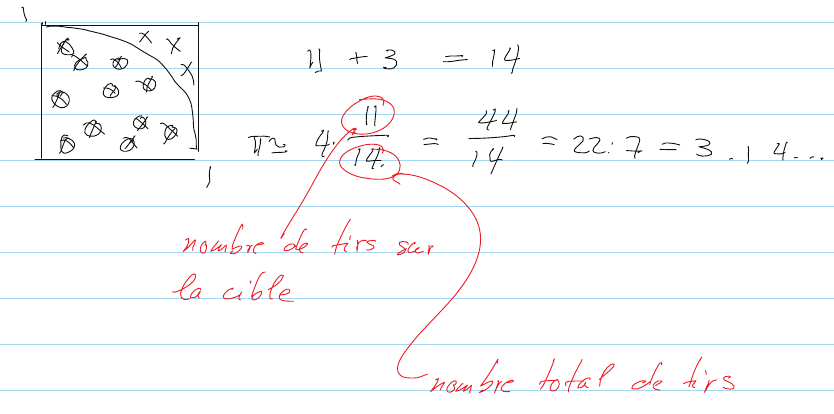 1
11 + 3 = 14
π ≃ 4. 11/14. = 44/14 = 22:7 = 3.14...
1
nombre de tirs sur
la cible
nombre total de tirs